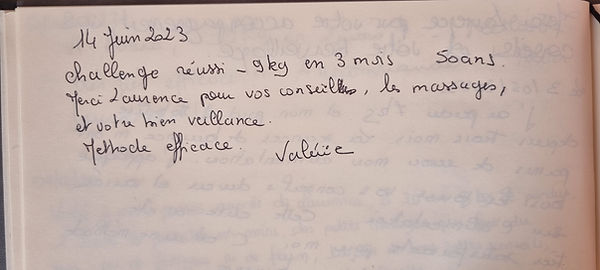 14 Juin 2023
Challenge réussi - 9kg en 3 mois 50 ans.
Merci Laurence pour vos conseils, les massages,
et votre bien veillance.
Methode efficace. Valérie